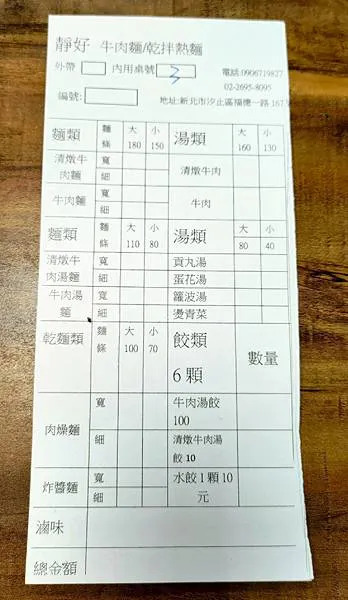 靜好 牛肉麵/乾拌熱麵
外帶 內用桌號 3 電話:0906719827
02-2695-8095
編號: 地址:新北市汐止區福德一路167
麵類 麵條 大180 小150 湯類 大160 小130
清燉牛肉麵 寬 細 清燉牛肉
牛肉麵 寬 細 牛肉
麵類 麵條 大110 小80 湯類 大80 小40
清燉牛肉湯麵 寬 細 貢丸湯 蛋花湯
牛肉湯麵 寬 細 蘿波湯 燙青菜
乾麵類 麵條 大100 小70 餃類 6顆 數量
肉燥麵 寬 細 牛肉湯餃 100
清燉牛肉湯餃10
炸醬麵 寬 細 水餃1顆10元
滷味
總金額